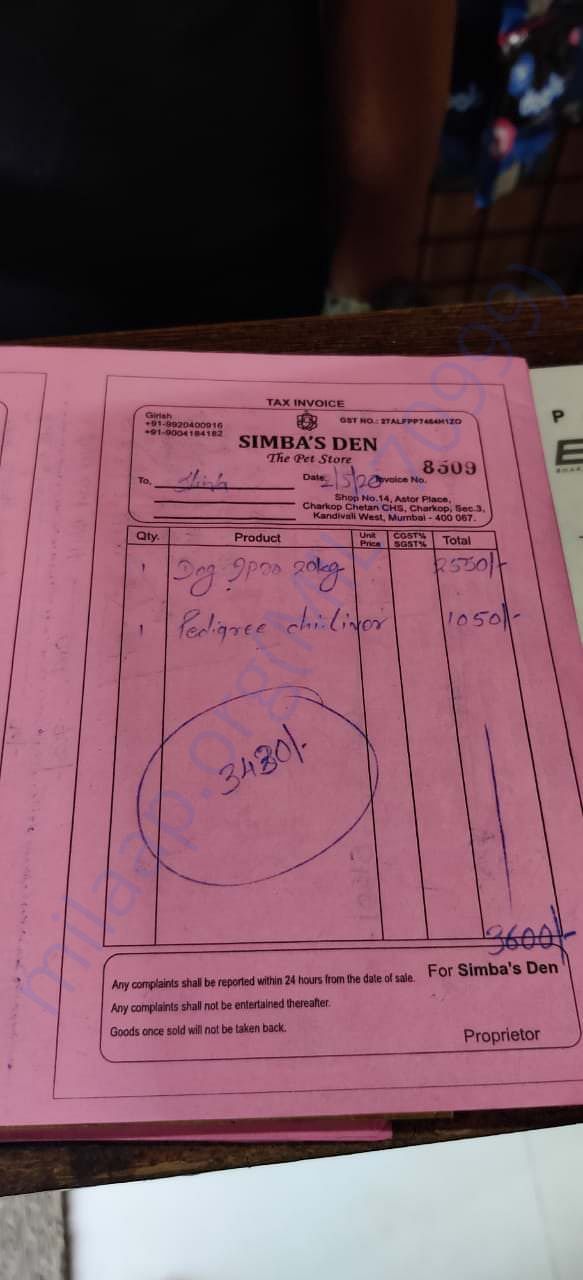 TAX INVOICE
Girish
+91-9920400916
+91-9004184182
GST NO.: 27ALFPP7464H1ZO
SIMBA'S DEN
The Pet Store
8509
To,
Date 2/5/20 Invoice No.
Shop No.14, Astor Place,
Charkop Chetan CHS, Charkop, Sec.3,
Kandivali West, Mumbai - 400 067.
Qty. Product Unit Price CGST% SGST% Total
1 Dog 20kg 2550/-
1 Pedigree chi: Liver 1050/-
3430/-
3600/-
Any complaints shall be reported within 24 hours from the date of sale.
For Simba's Den
Any complaints shall not be entertained thereafter.
Goods once sold will not be taken back.
Proprietor
P
E